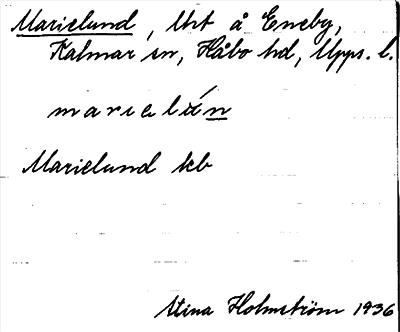 Marielund, lht å Eneby,
Kalmar sn, Håbo hd, Upps. l.
mariɛlún
Marielund kb
Stina Holmström 1936